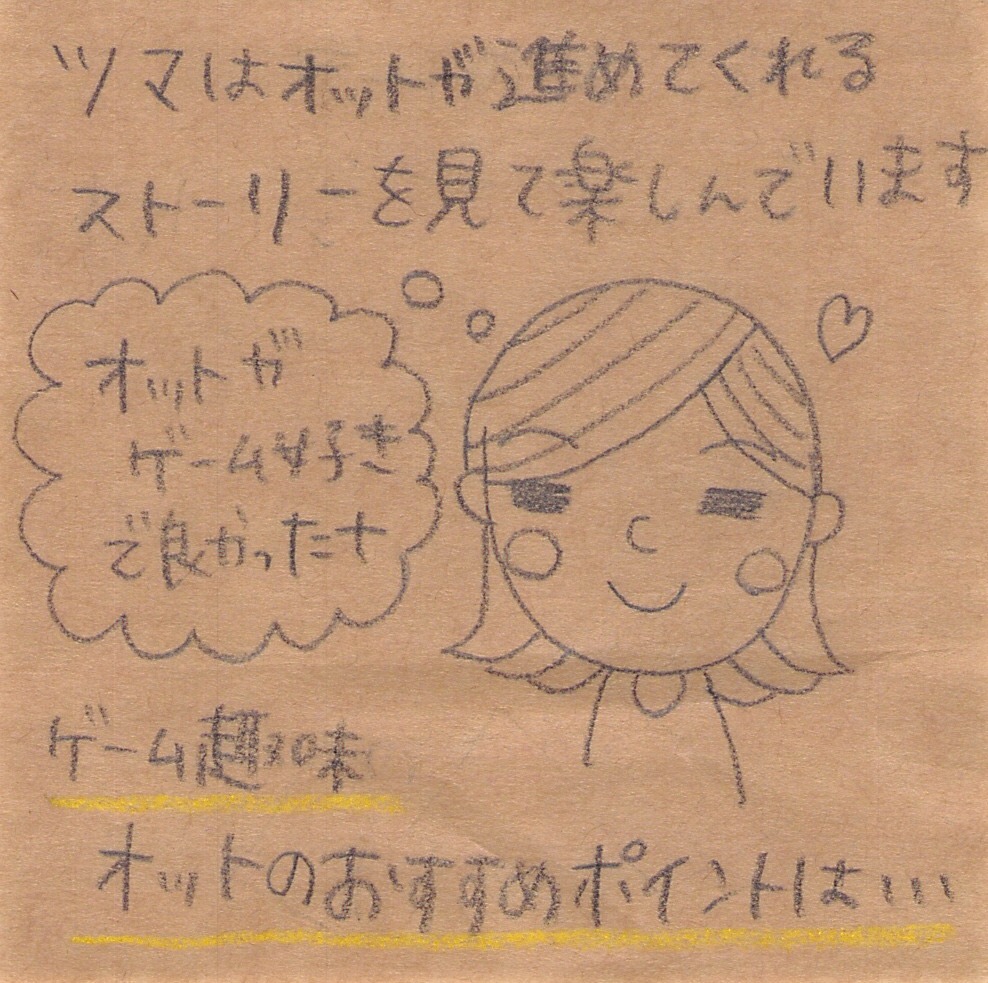 ツマはオットが進めてくれる
ストーリーを見て楽しんでいます
オットが
ゲーム好き
で良かったナ
ゲーム趣味
オットのおすすめポイントは…